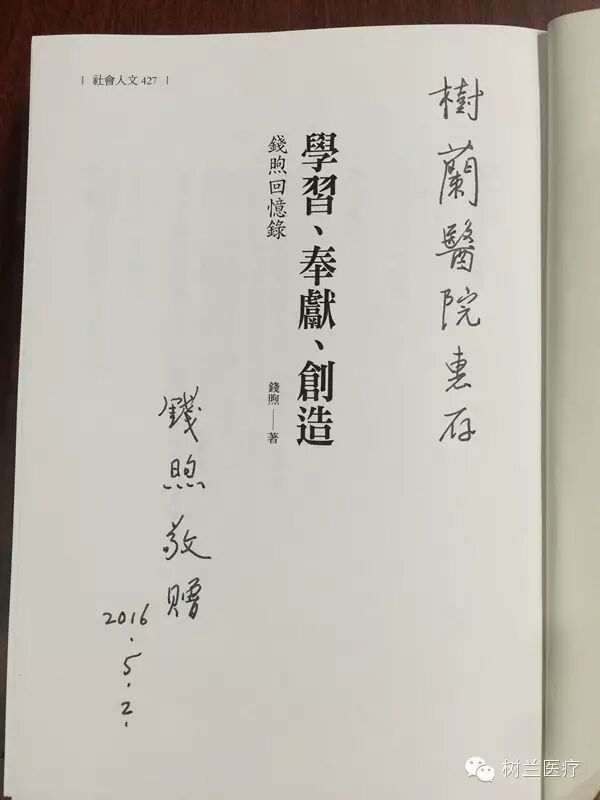 社會人文 427
樹蘭醫院惠存
學習、奉獻、創造
錢煦回憶錄
錢煦——著
錢煦敬贈
2016.5.2.
树兰医疗